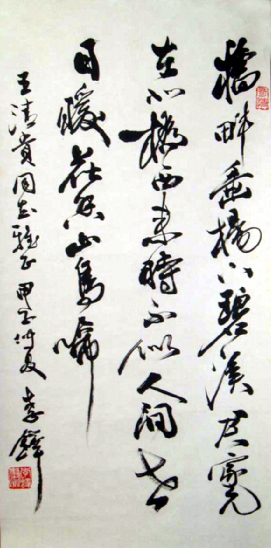 橋畔垂楊下碧溪君家元
在北橋西来時不似人間世
日暖花香山鳥啼
王清贵同志雅正 甲子仲夏 李鐸